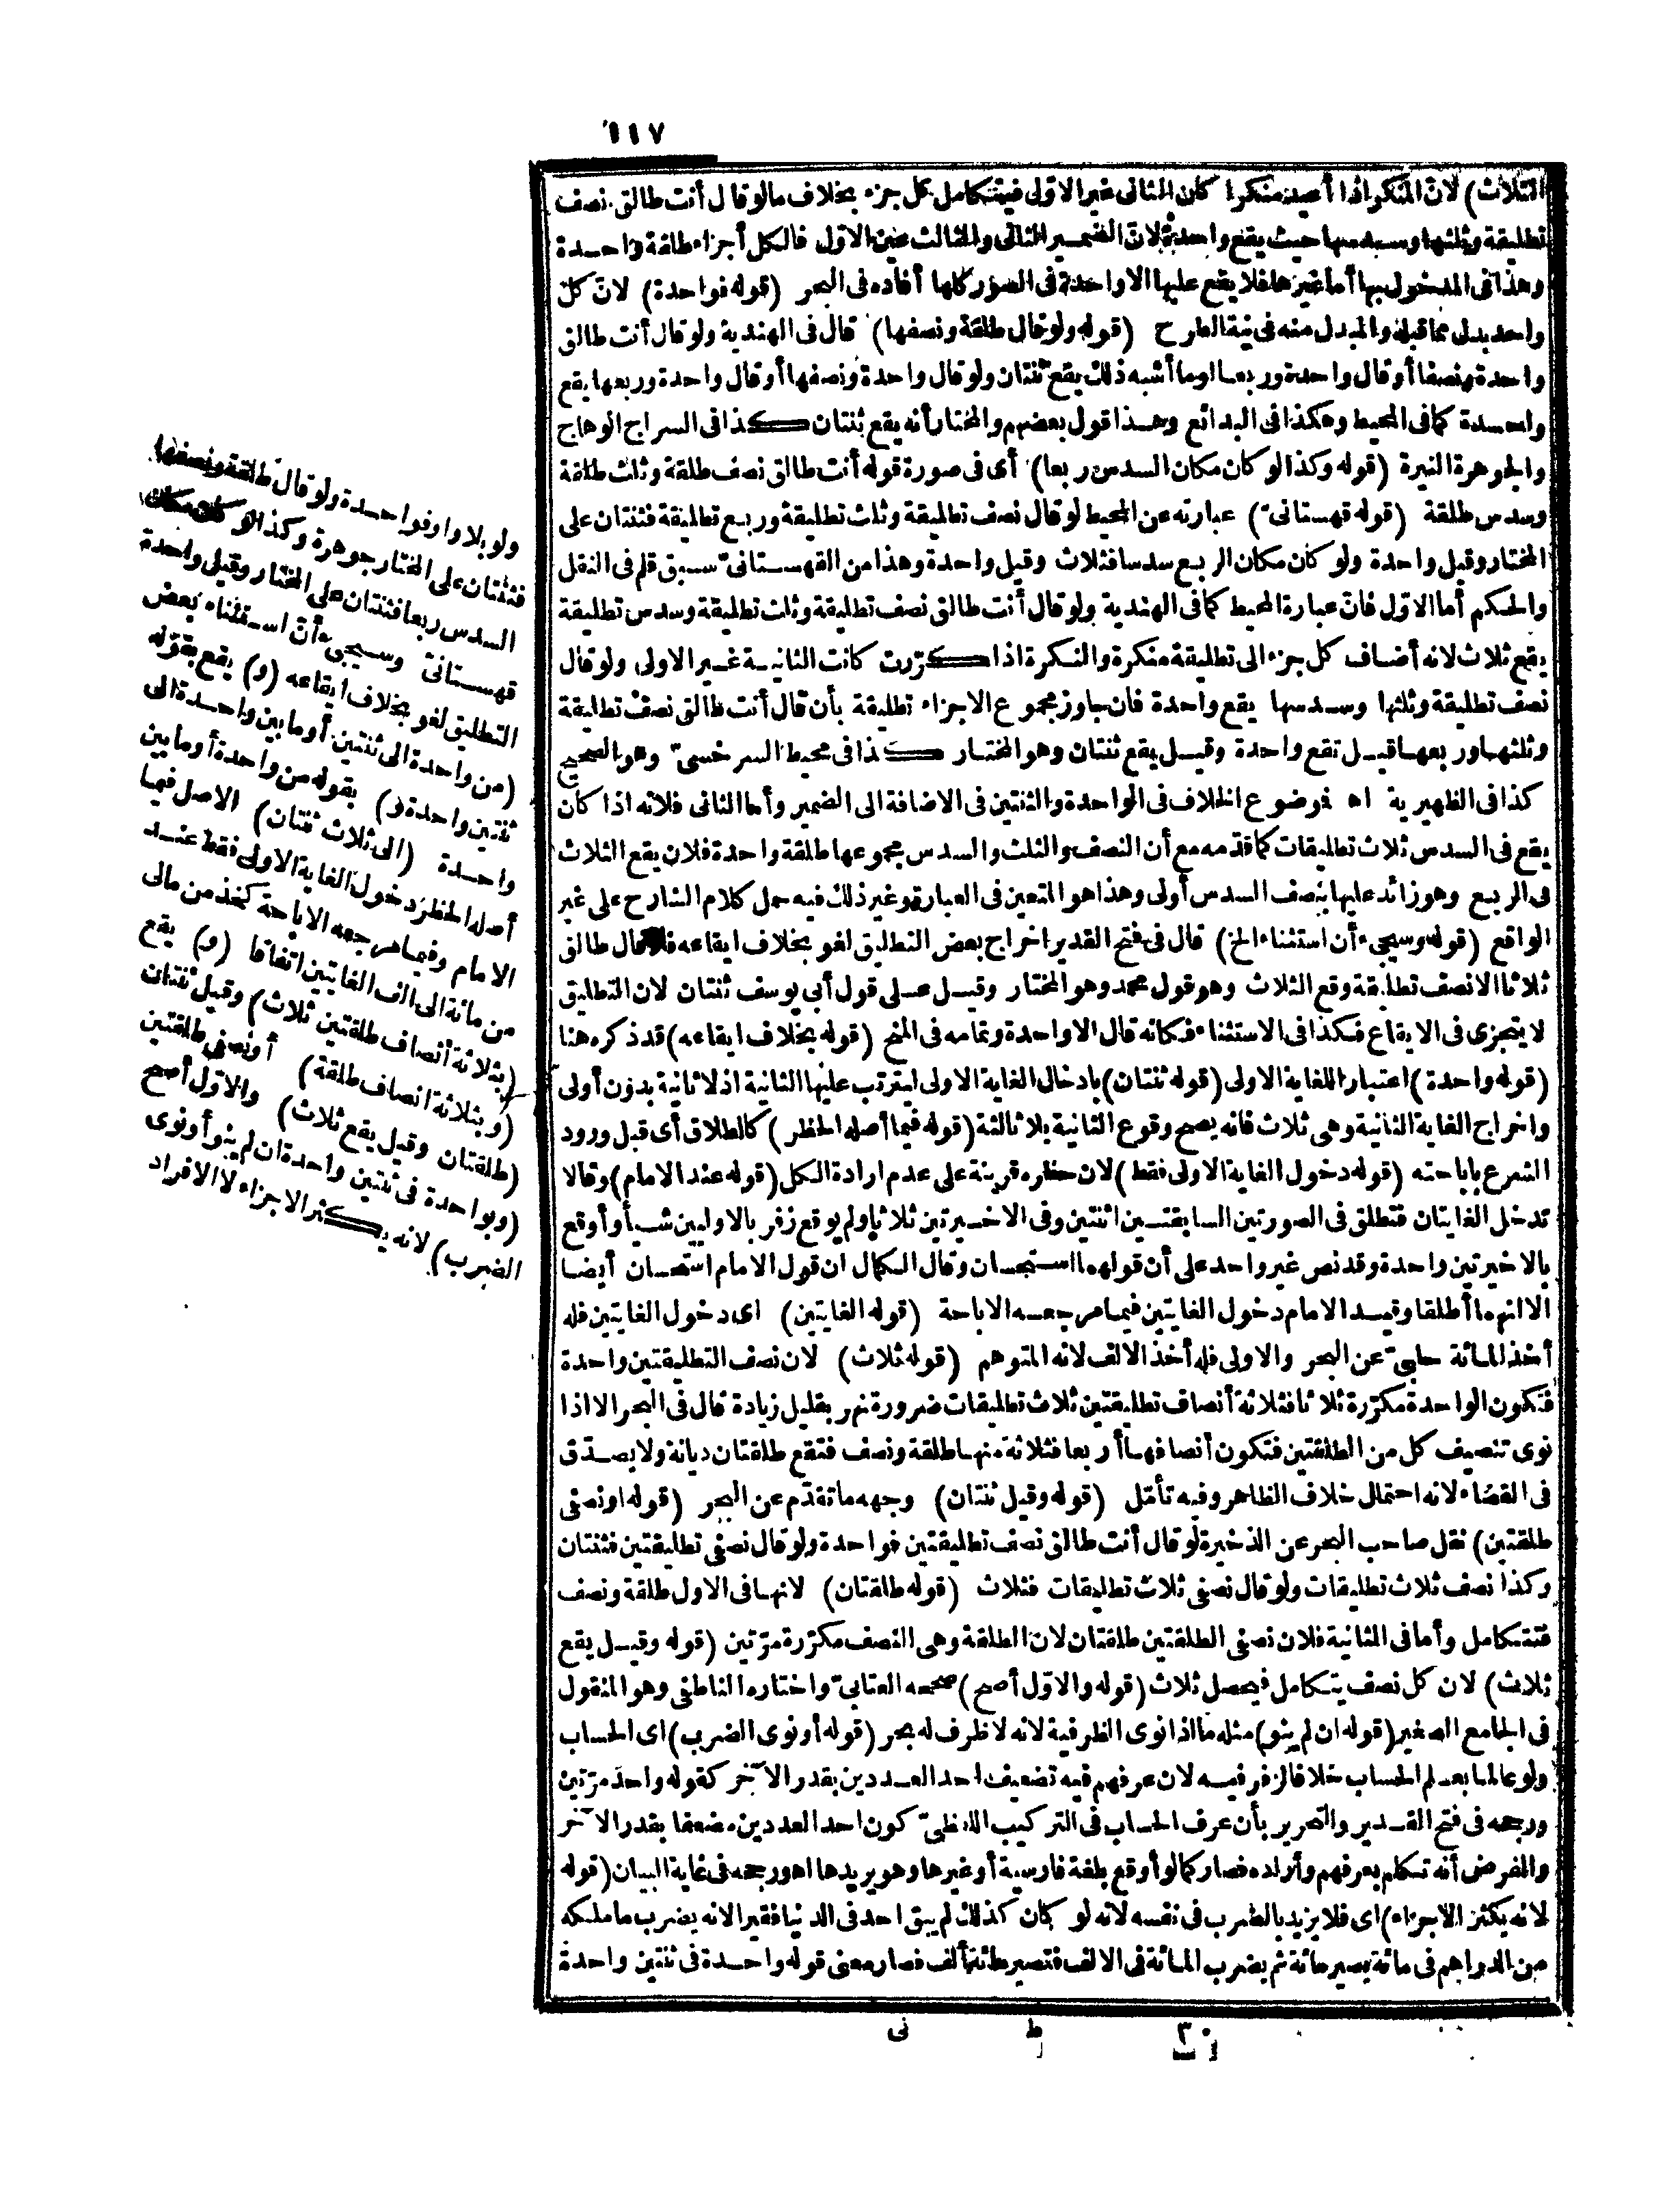 ١١٧
الثلاث) لان المنكر اذا أعيد منكرا كان الثانى غير الاوّلى فيتكامل كل جزء بخلاف مالو قال أنت طالق نصف
تطليقة وثلثها وسدسها حيث يقع واحدة لانّ الضمير الثانى والثالث عين الاوّل فالكل أجزاء طلقة واحدة
وهذا فى المدخول بها أما غيرها فلا يقع عليها الا واحدة فى الصور كلها أفاده فى البحر (قوله فواحدة) لانّ كلّ
واحد بدل مما قبله والمبدل منه فى نية الطرح (قوله ولو قال طلقة ونصفها) قال فى الهندية ولو قال أنت طالق
واحدة ونصفا أو قال واحدة وربعا اوما أشبه ذلك يقع ثنتان ولو قال واحدة ونصفها أو قال واحدة وربعها يقع
واحدة كما فى المحيط وهكذا فى البدائع وهذا قول بعضهم والمختار أنه يقع ثنتان كذا فى السراج الوهاج
والجوهرة النيرة (قوله وكذا لو كان مكان السدس ربعا) أى فى صورة قوله أنت طالق نصف طلقة وثلث طلقة
وسدس طلقة (قوله قهستانىّ) عبارته عن المحيط لو قال نصف تطليقة وثلث تطليقة وربع تطليقة فثنتان على
المختار وقيل واحدة ولو كان مكان الربع سدسا فثلاث وقيل واحدة وهذا من القهستانىّ سبق قلم فى النقل
والحكم أما الاوّل فانّ عبارة المحيط كما فى الهندية ولو قال أنت طالق نصف تطليقة وثلث تطليقة وسدس تطليقة
يقع ثلاث لانه أضاف كل جزء الى تطليقة منكرة والنكرة اذا كرّرت كانت الثانية غير الاولى ولو قال
نصف تطليقة وثلثها وسدسها يقع واحدة فان جاوز مجموع الاجزاء تطليقة بأن قال أنت طالق نصف تطليقة
وثلثها وربعها قيل تقع واحدة وقيل يقع ثنتان وهو المختار كذا فى محيط السرخسىّ وهو الصحيح
كذا فى الظهيرية اه فوضوع الخلاف فى الواحدة والثنتين فى الاضافة الى الضمير وأما الثانى فلانه اذا كان
يقع فى السدس ثلاث تطليقات كما قدّمه مع أن النصف والثلث والسدس مجموعها طلقة واحدة فلان يقع الثلاث
فى الربع وهو زائد عليها بنصف السدس أولى وهذا هو المتعين فى العبارة وغير ذلك فيه حمل كلام الشارح على غير
الواقع (قوله وسيجىء أن استثناء الخ) قال فى فتح القدير اخراج بعض التطليق لغو بخلاف ايقاعه فلو قال طالق
ثلاثا الا نصف تطليقة وقع الثلاث وهو قول محمد وهو المختار وقيل على قول أبى يوسف ثنتان لان التطليق
لا يتجزى فى الايقاع فكذا فى الاستثناء فكانه قال الا واحدة وتمامه فى المنح (قوله بخلاف ايقاعه) قد ذكره هنا
(قوله واحدة) اعتبار اللغاية الاولى (قوله ثنتان) بادخال الغاية الاولى ليترتب عليها الثانية اذ لا ثانية بدون أولى
واخراج الغاية الثانية وهى ثلاث فانه يصح وقوع الثانية بلا ثالثة (قوله فيما أصله الحظر) كالطلاق أى قبل ورود
الشرع باباحته (قوله دخول الغاية الاولى فقط) لان حظره قرينة على عدم ارادة الكل (قوله عند الامام) وقالا
تدخل الغايتان فتطلق فى الصورتين السابقتين اثنتين وفى الاخيرتين ثلاثا ولم يوقع زفر بالاوليين شيأ وأوقع
بالاخيرتين واحدة وقد نص غير واحد على أن قولهما استحسان وقال الكمال ان قول الامام استحسان أيضا
الا انهما أطلقا وقيد الامام دخول الغايتين فيما مرجعه الاباحة (قوله الغايتين) اى دخول الغايتين فله
أخذ المائة حلبىّ عن البحر والاولى فله أخذ الالف لانه المتوهم (قوله ثلاث) لان نصف التطليقتين واحدة
فتكون الواحدة مكرّرة ثلاثا فثلاثة أنصاف تطليقتين ثلاث تطليقات ضرورة نهر بقليل زيادة قال فى البحر الا اذا
نوى تنصيف كل من الطلقتين فتكون أنصافها أربعا فثلاثة منها طلقة ونصف فتقع طلقتان ديانة ولا يصدّق
فى القضاء لانه احتمال خلاف الظاهر وفيه تأمّل (قوله وقيل ثنتان) وجهه ما تقدّم عن البحر (قوله اونصفى
طلقتين) نقل صاحب البحر عن الذخيرة لو قال أنت طالق نصف تطليقتين فواحدة ولو قال نصفى تطليقتين فثنتان
وكذا نصف ثلاث تطليقات ولو قال نصفى ثلاث تطليقات فثلاث (قوله طلقتان) لانها فى الاول طلقة ونصف
فتتكامل وأما فى الثانية فلان نصفى الطلقتين طلقتان لان الطلقة وهى النصف مكرّرة مرّتين (قوله وقيل يقع
ثلاث) لان كل نصف يتكامل فيحصل ثلاث (قوله والاوّل أصح) صححه العتابىّ واختاره الناطفى وهو المنقول
فى الجامع الصغير (قوله ان لم ينو) مثله ما اذا نوى الظرفية لانه لا ظرف له بحر (قوله أو نوى الضرب) اى الحساب
ولو عالما بعلم الحساب خلافا لزفر فيه لان عرفهم فيه تضعيف احد العددين بقدر الآخر كقوله واحد مرّتين
ورجحه فى فتح القدير والتحرير بأن عرف الحساب فى التركيب اللفظىّ كون احد العددين مضعفا بقدر الآخر
والفرض أنه تكلم بعرفهم وأراده فصار كما لو أوقع بلغة فارسية أو غيرها وهو يريدها اه ورجحه فى غاية البيان (قوله
لانه يكثر الاجزاء) اى فلا يزيد بالضرب فى نفسه لانه لو كان كذلك لم يبق احد فى الدنيا فقيرا لانه يضرب ما ملكه
من الدراهم فى مائة يصير مائة ثم يضرب المائة فى الالف فتصير مائة ألف فصار معنى قوله واحدة فى ثنتين واحدة
ولو بلا واو فواحدة ولو قال طلقة ونصفها
فثنتان على المختار جوهرة وكذا لو كان مكان
السدس ربعا فثنتان على المختار وقيل واحدة
قهستانىّ وسيجىء أنّ استثناء بعض
التطليق لغو بخلاف ايقاعه (و) يقع بقوله
(من واحدة الى ثنتين أو ما بين واحدة الى
ثنتين واحدة و) بقوله من واحدة أو ما بين
واحدة (الى ثلاث ثنتان) الاصل فيما
أصله الحظر دخول الغاية الاولى فقط عند
الامام وفيما مرجعه الاباحة كخذ من مالى
من مائة الى الف الغايتين اتفاقا (و) يقع
(بثلاثة أنصاف طلقتين ثلاث) وقيل ثنتان
(و بثلاثة انصاف طلقة) أو نصفى طلقتين
(طلقتان وقيل يقع ثلاث) والاوّل أصح
(وبواحدة فى ثنتين واحدة ان لم ينو أو نوى
الضرب) لانه يكثر الاجزاء لا الافراد
٣٠ ط نى